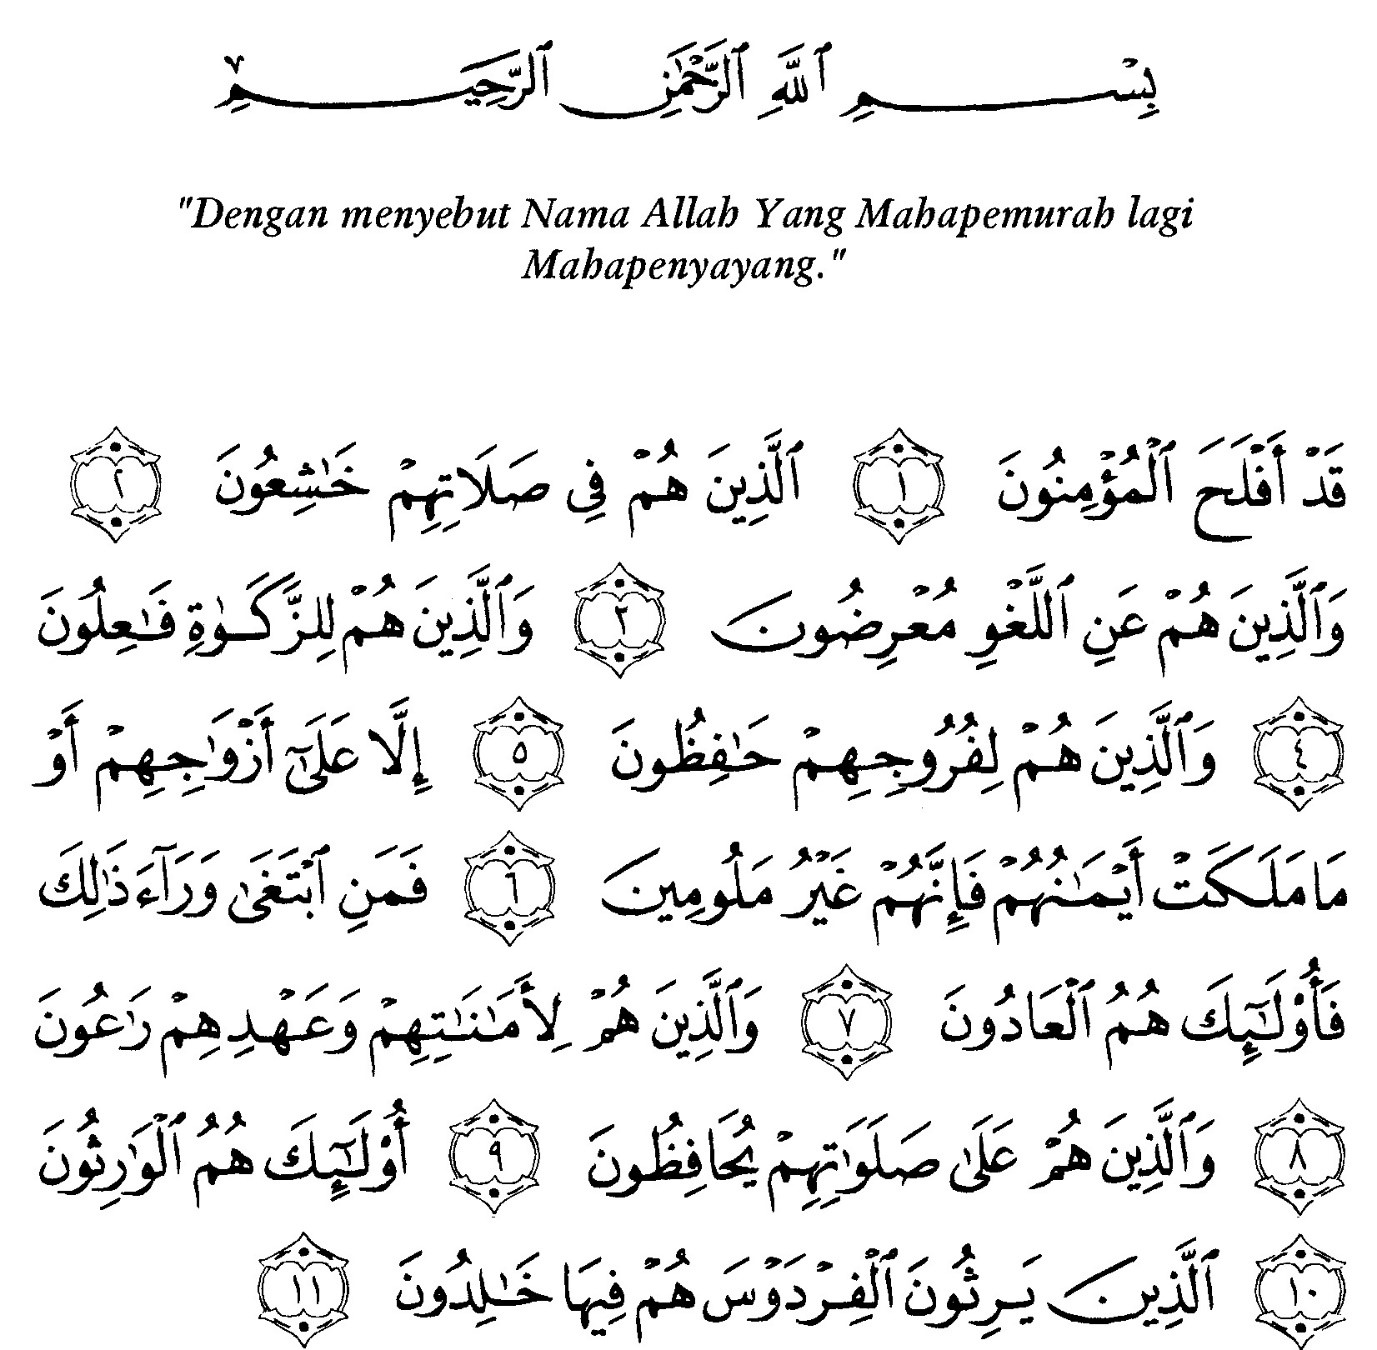 بِسْمِ ٱللَّهِ ٱلرَّحْمَٰنِ ٱلرَّحِيمِ
"Dengan menyebut Nama Allah Yang Mahapemurah lagi
Mahapenyayang."
قَدْ أَفْلَحَ ٱلْمُؤْمِنُونَ ١ ٱلَّذِينَ هُمْ فِى صَلَاتِهِمْ خَٰشِعُونَ ٢
وَٱلَّذِينَ هُمْ عَنِ ٱللَّغْوِ مُعْرِضُونَ ٣ وَٱلَّذِينَ هُمْ لِلزَّكَوٰةِ فَٰعِلُونَ
٤ وَٱلَّذِينَ هُمْ لِفُرُوجِهِمْ حَٰفِظُونَ ٥ إِلَّا عَلَىٰٓ أَزْوَٰجِهِمْ أَوْ
مَا مَلَكَتْ أَيْمَٰنُهُمْ فَإِنَّهُمْ غَيْرُ مَلُومِينَ ٦ فَمَنِ ٱبْتَغَىٰ وَرَآءَ ذَٰلِكَ
فَأُو۟لَٰٓئِكَ هُمُ ٱلْعَادُونَ ٧ وَٱلَّذِينَ هُمْ لِأَمَٰنَٰتِهِمْ وَعَهْدِهِمْ رَٰعُونَ
٨ وَٱلَّذِينَ هُمْ عَلَىٰ صَلَوَٰتِهِمْ يُحَافِظُونَ ٩ أُو۟لَٰٓئِكَ هُمُ ٱلْوَٰرِثُونَ
١٠ ٱلَّذِينَ يَرِثُونَ ٱلْفِرْدَوْسَ هُمْ فِيهَا خَٰلِدُونَ ١١